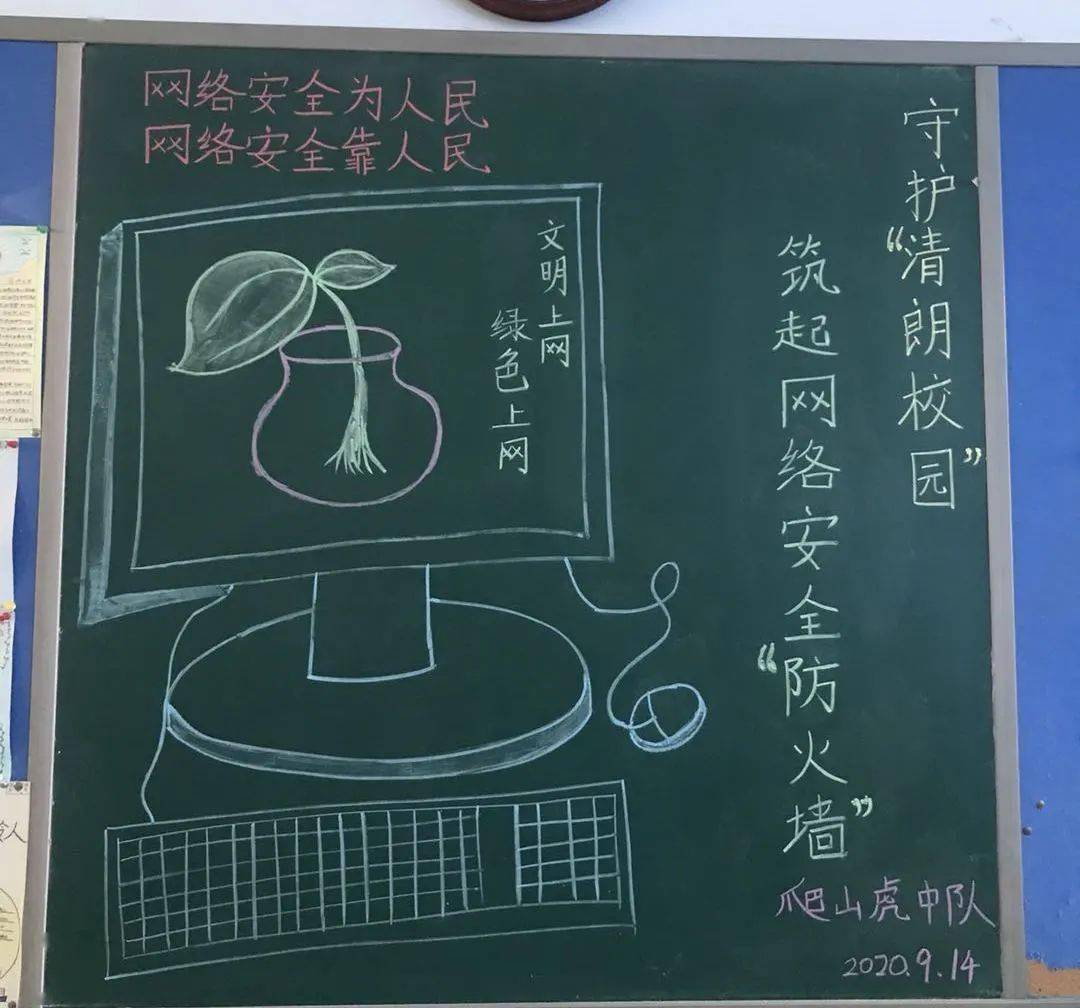 网络安全为人民
网络安全靠人民
守护“清朗校园”
筑起网络安全“防火墙”
文明上网
绿色上网
爬山虎中队
2020.9.14